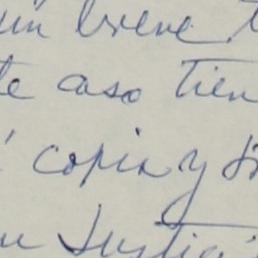 un breve
te caso tien
copia y
su Justicia